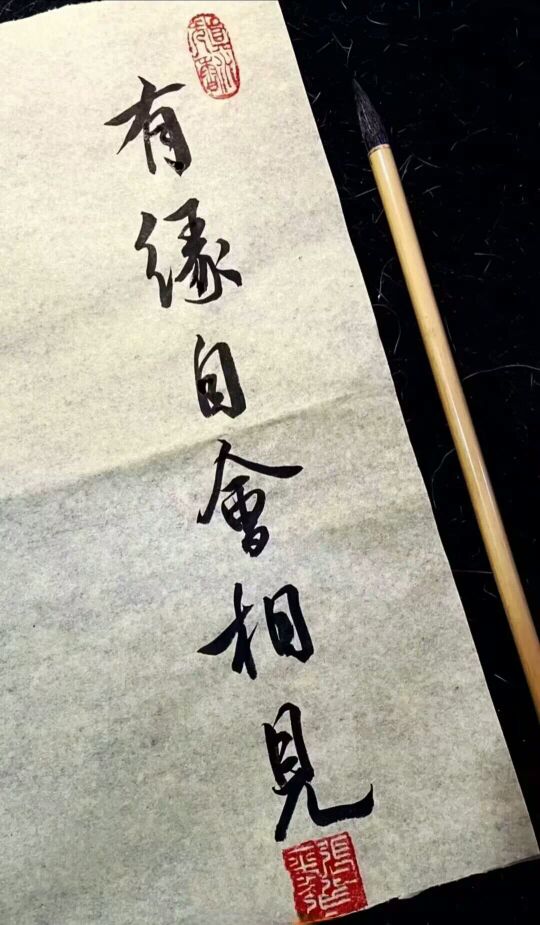 有緣自會相見